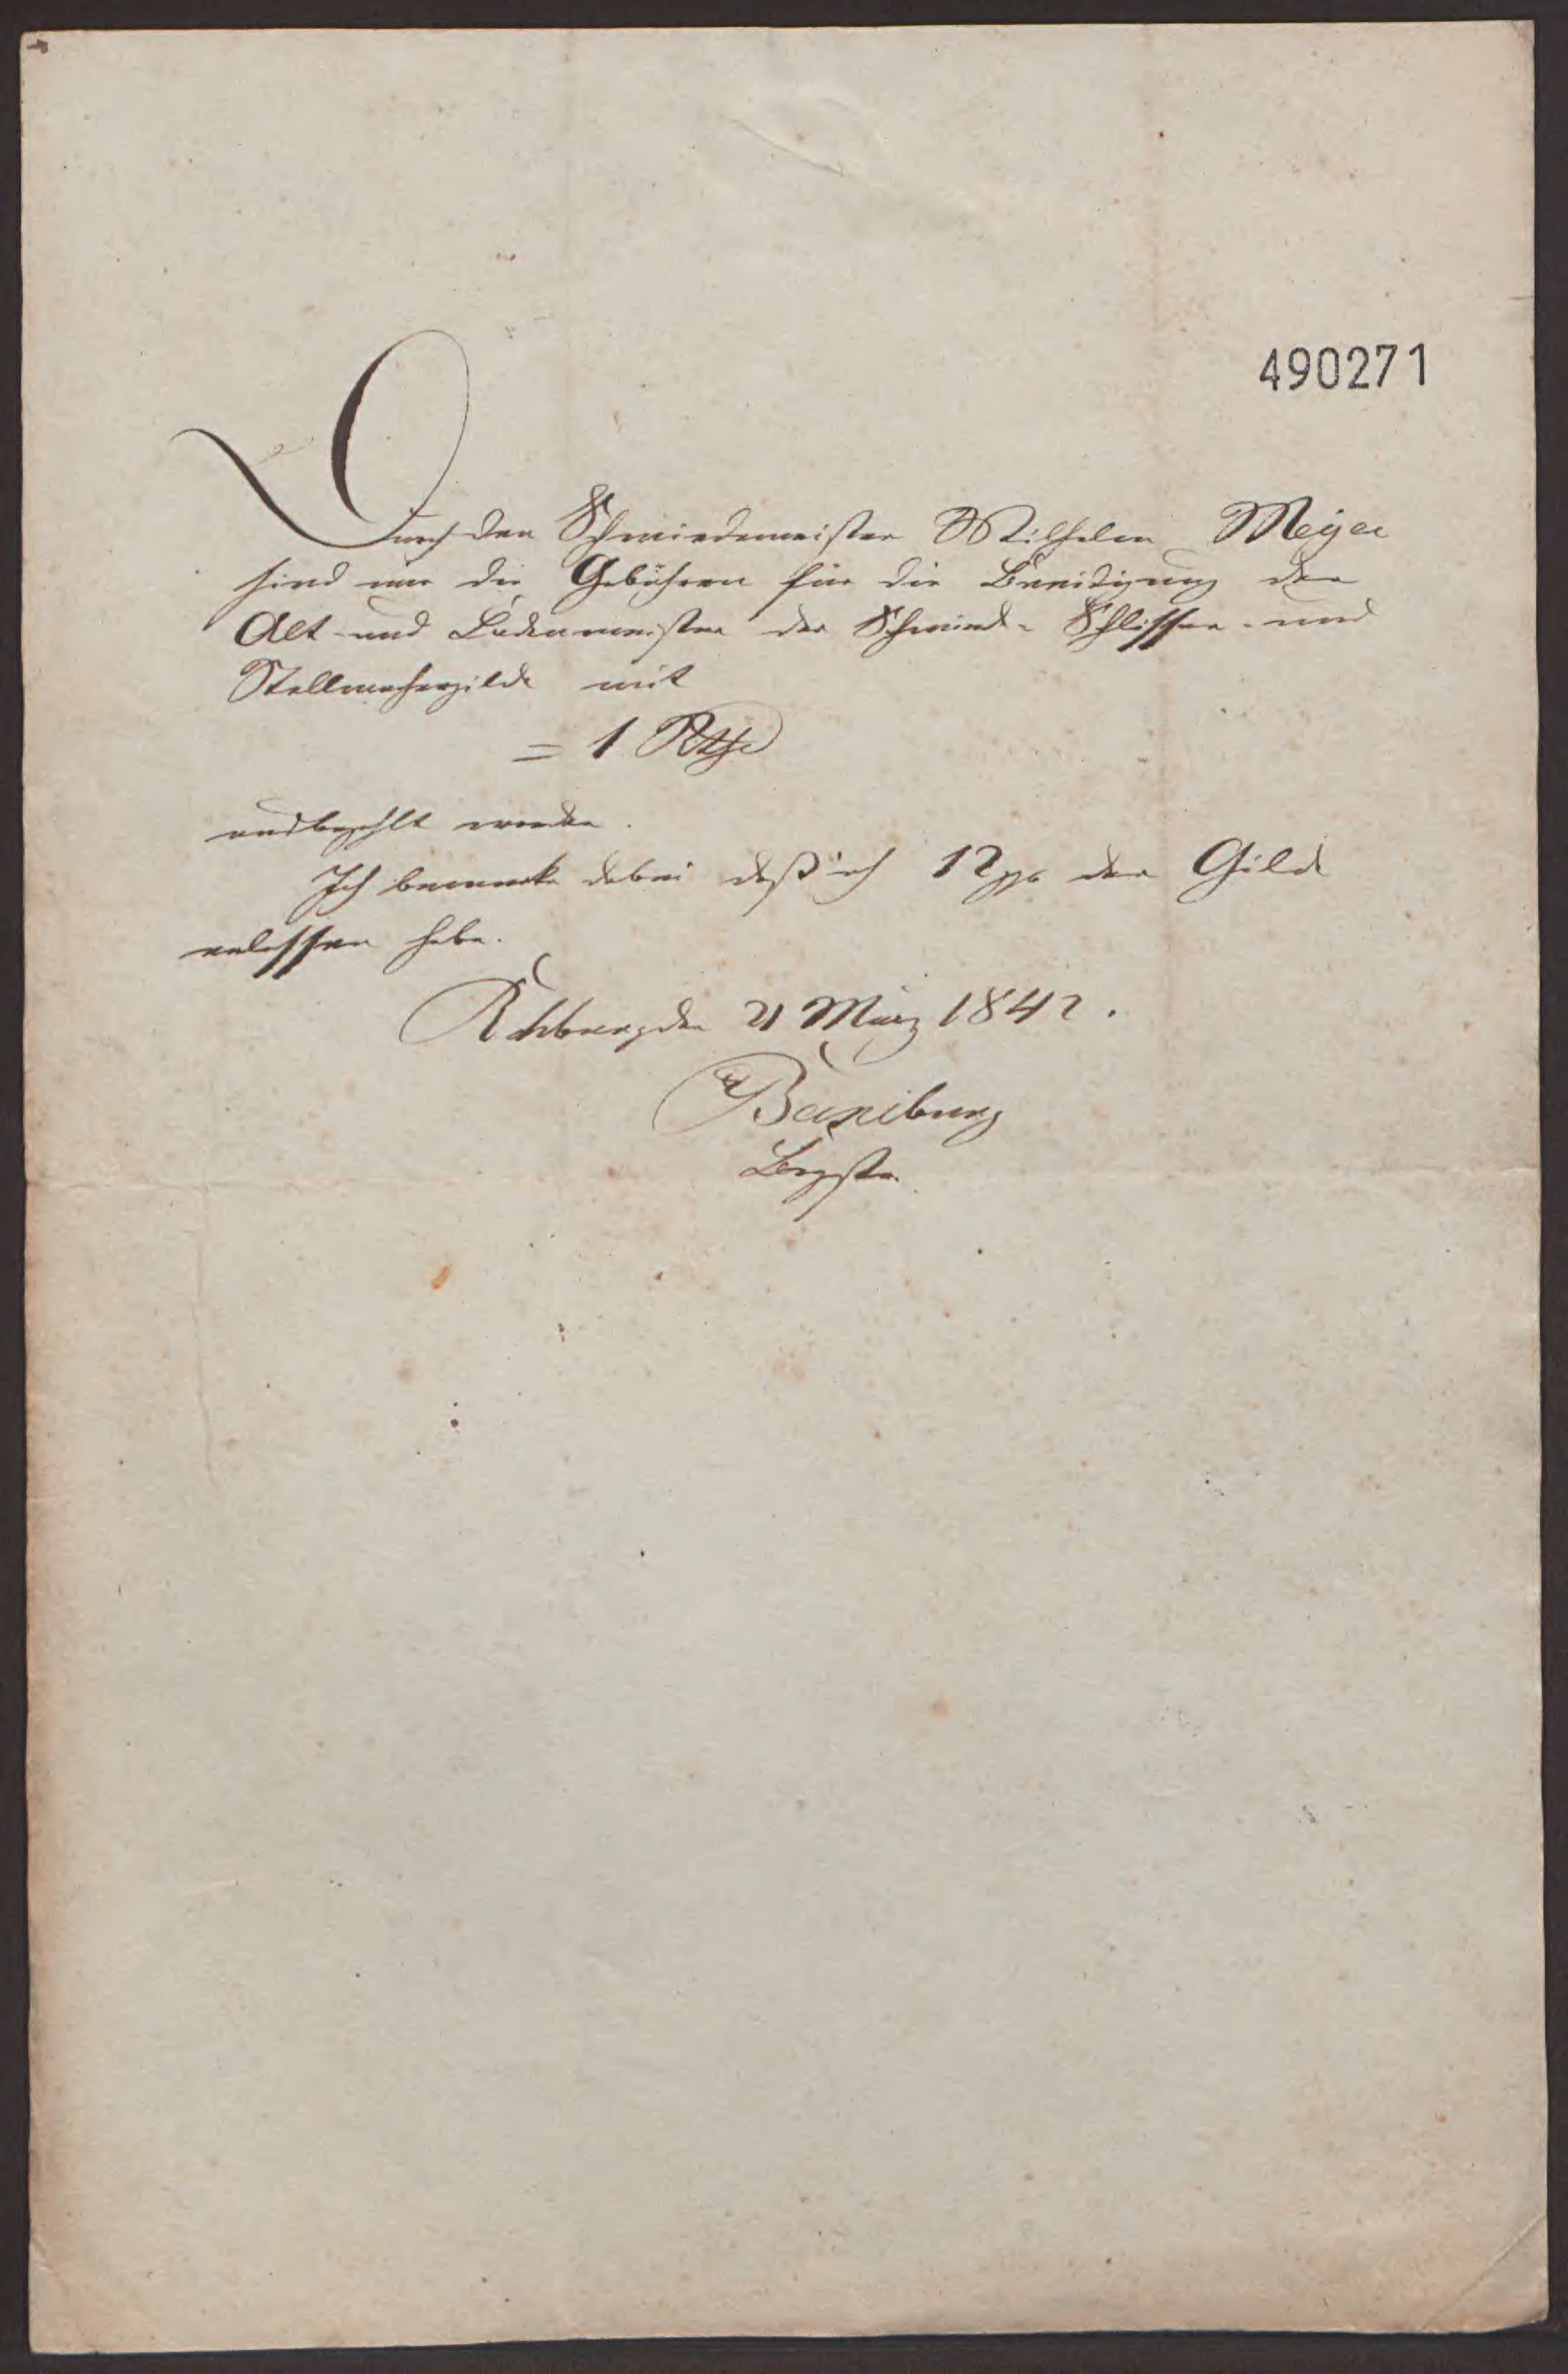 490271
Durch den Schmiedemeister Wilhelm Meyer
sind mir die Gebühren für die Beeidigung der
Alt- und Ladenmeister der Schmiede- Schlosser- und
Stellmachergilde mit
= 1 Rthl
ausbezahlt worden.
Ich bemerke dabei daß ich 12 ggr der Gilde
erlassen habe.
Rehburg den 21 März 1842.
Bgmstr.